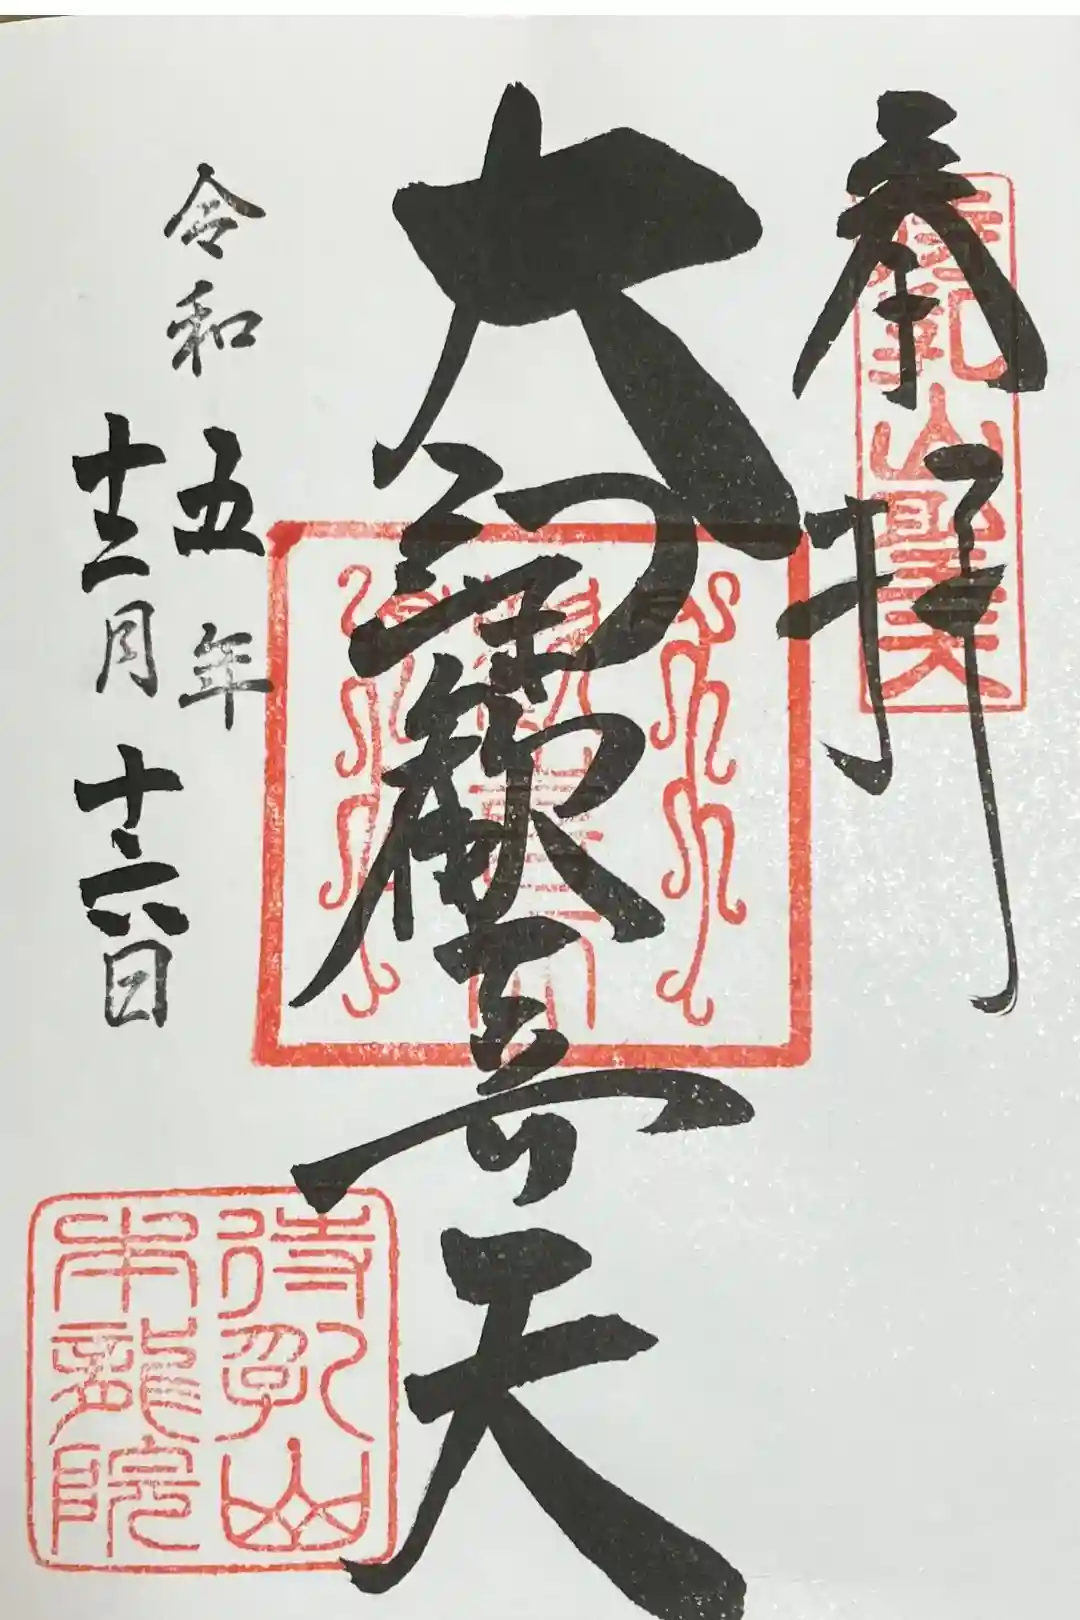 奉拝
待乳山聖天
大聖歓喜天
令和五年
十二月十六日
待乳山
本龍院